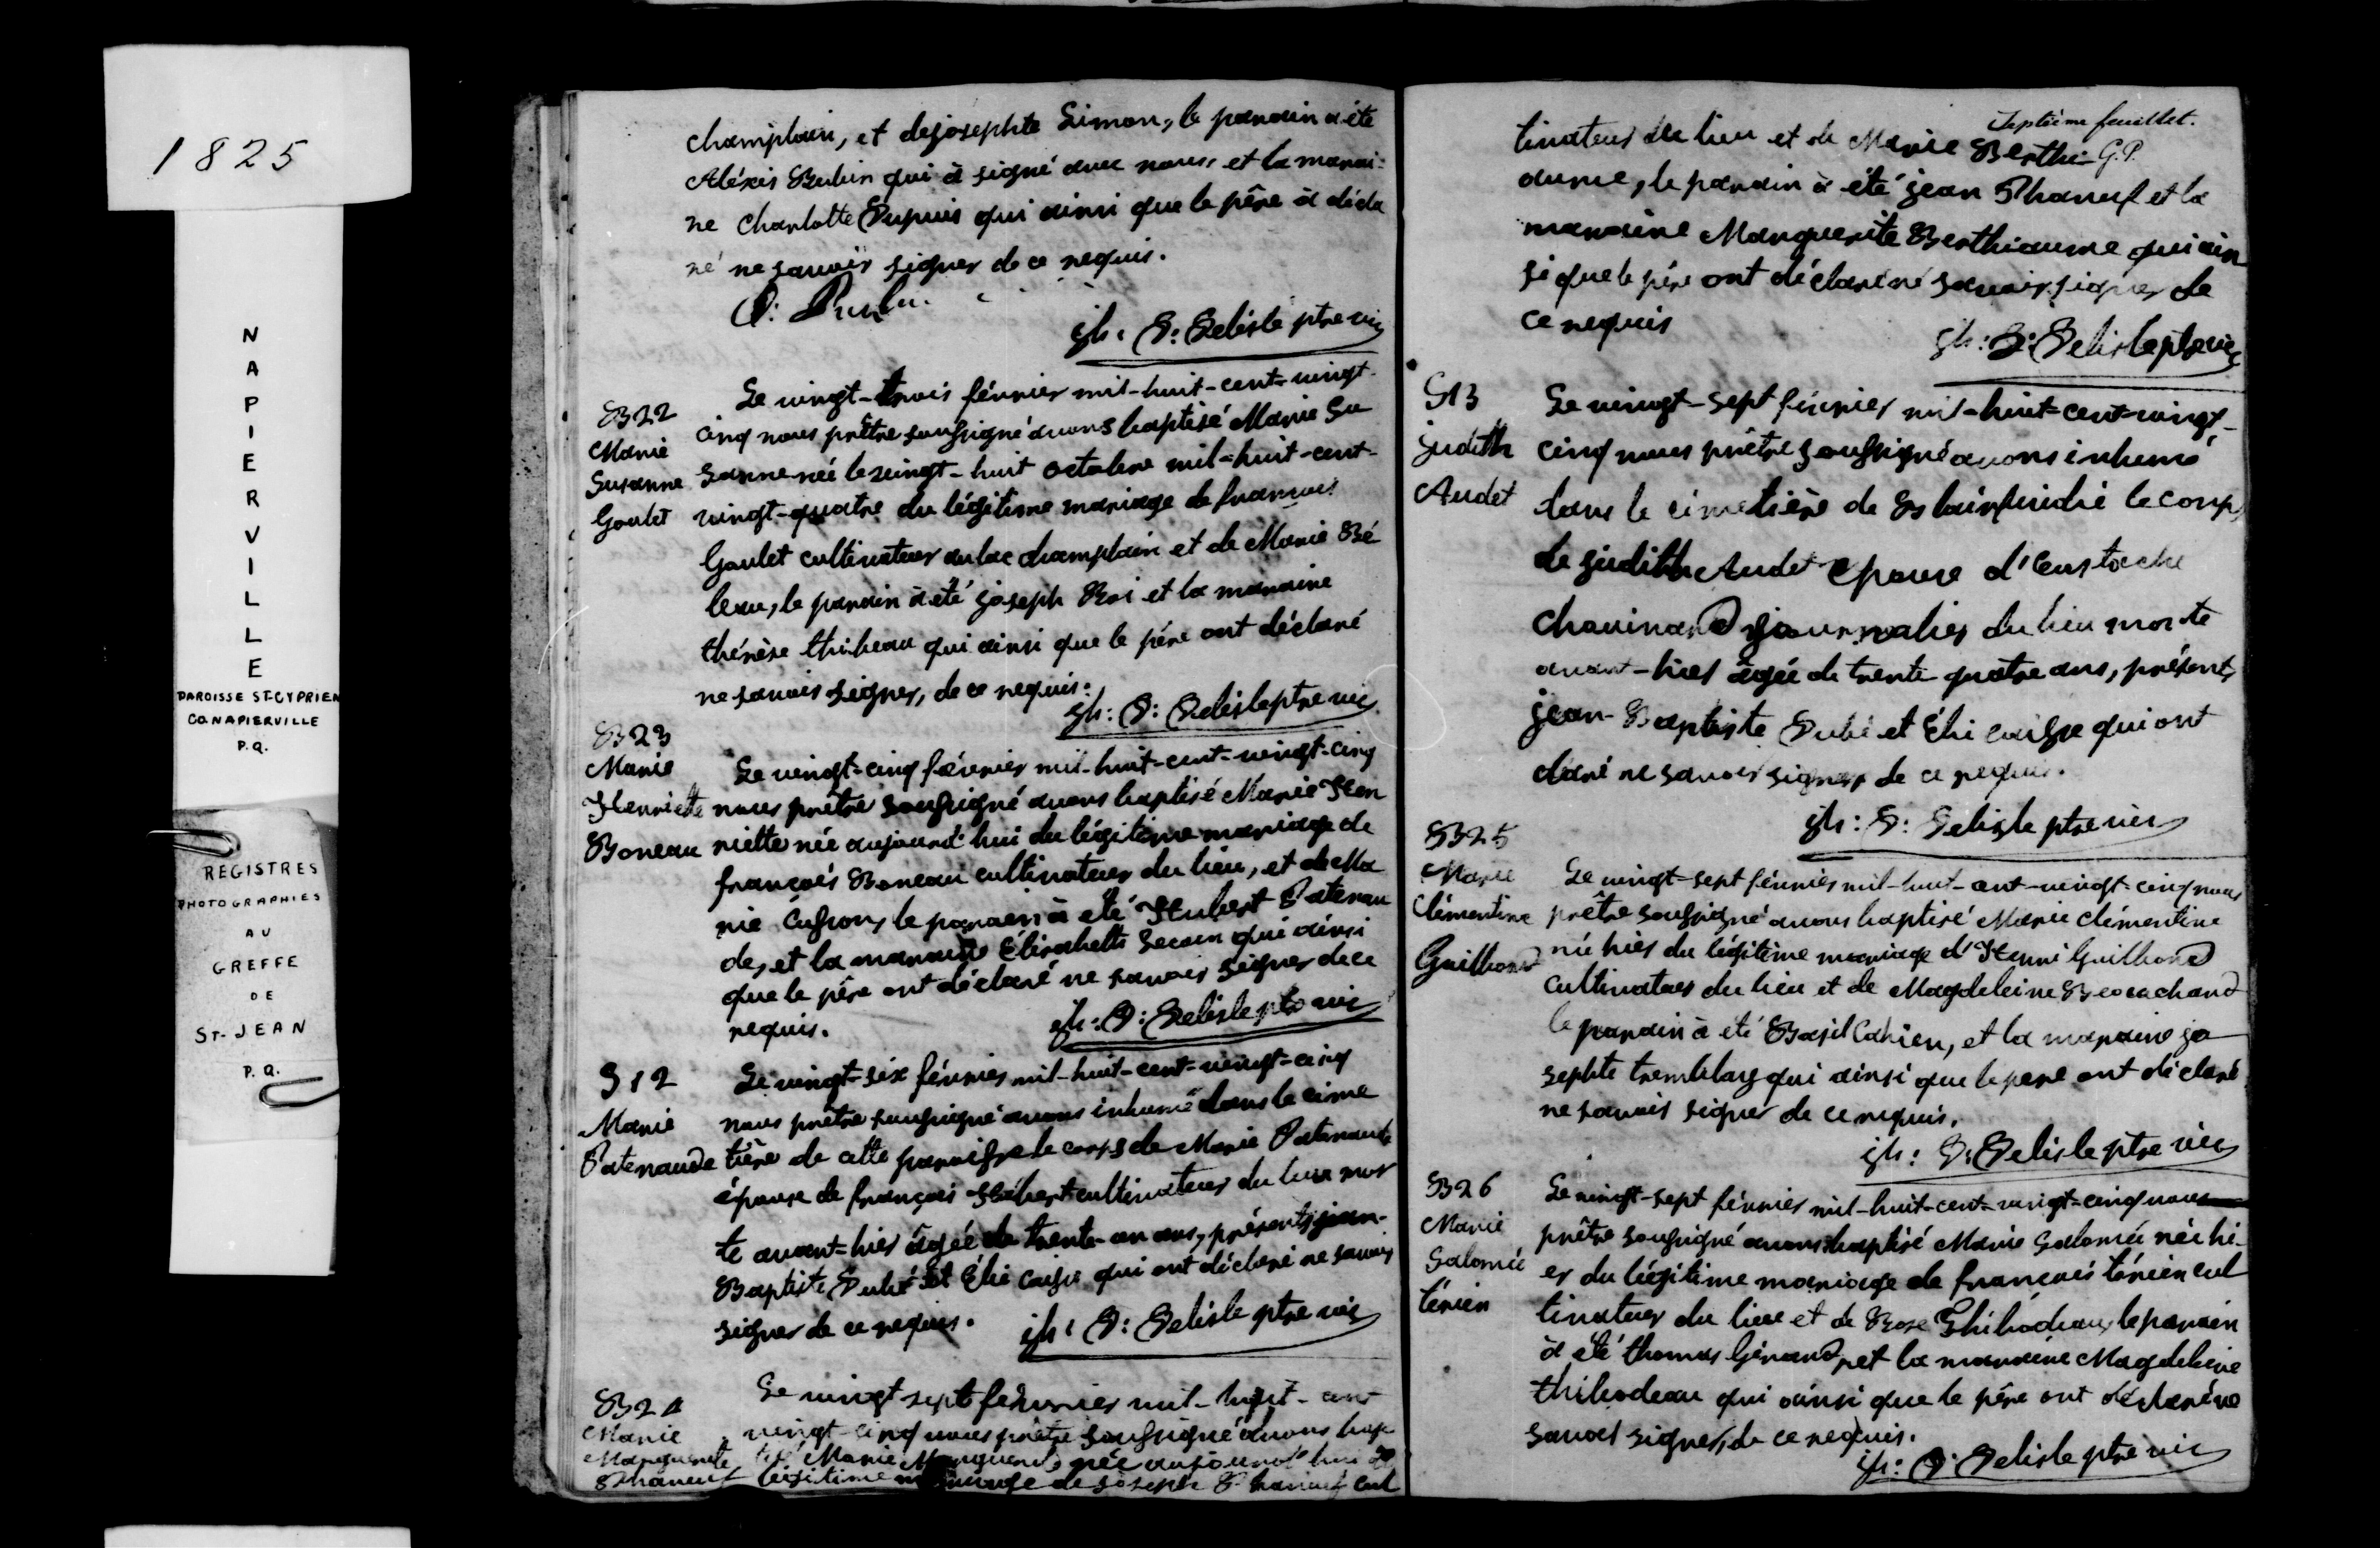 1825
NAPIERVILLE
PAROISSE ST-CYPRIEN
CO. NAPIERVILLE
P.Q.
REGISTRES
PHOTOGRAPHIES
AU
GREFFE
DE
ST-JEAN
P.Q.
champlain, et de josephte Simon, le parain a été
Aléxis Bulin qui à signé avec nous et la marai:
ne Charlotte Dupuis qui ainsi que le père à décla
ré ne savoir signer de ce requis.
jh: D: Delisle ptre vic
B22
Marie
Susanne
Goulet
Le vingt-trois février mil-huit-cent-vingt-
cinq nous prêtre soussigné avons baptisé Marie Su
sanne née le vingt-huit octobre mil-huit-cent-
vingt-quatre du légitime mariage de francois
Goulet cultivateur au lac champlain et de Marie Bé
leau, le parain à été joseph Roi et la maraine
thérèse thibeau qui ainsi que le père ont déclaré
ne savoir signer, de ce requis.
jh: D: Delisle ptre vic
B23
Marie
Henriette
Boneau
Le vingt-cinq février mil-huit-cent-vingt-cinq
nous prêtre soussigné avons baptisé Marie Hen
riette née aujourd'hui du légitime mariage de
françois Boneau cultivateur du lieu, et de Ma
rie Cusson, le parain à été Hubert Patenau
de, et la maraine Elisabeth Secoin qui ainsi
que le père ont déclaré ne savoir signer de ce
requis.
jh: D: Delisle ptre vic
S12
Marie
Patenaude
Le vingt-six février mil-huit-cent-vingt-cinq
nous prêtre soussigné avons inhumé dans le cime
tière de cette paroisse le corps de Marie Patenaude
épouse de françois Hébert cultivateur du lieu mor
te avant-hier âgée de trente-un ans, présents jean-
Baptiste Dubé et Elie Caisse qui ont déclaré ne savoir
signer de ce requis.
jh: D: Delisle ptre vic
B24
Marie
Marguerite
Phaneuf
Le vingt sept février mil-huit-cent
vingt-cinq nous prêtre soussigné avons bap
tisé Marie Marguerite née aujourd'hui du
légitime mariage de joseph Phaneuf cul
Septième feuillet.
G.P.
tivateur du lieu et de Marie Berthi
aume, le parain à été jean Phaneuf et la
maraine Marguerite Berthiaume qui ain
si que le père ont déclaré ne savoir signer de
ce requis
jh: D: Delisle ptre vic
S13
judith
Audet
Le vingt-sept février mil-huit-cent-vingt-
cinq nous prêtre soussigné avons inhumé
dans le cimetière de le corps
de judith Audet épouse d'Eustache
chouinard journalier du lieu morte
avant-hier âgée de trente quatre ans, présents
jean-Baptiste Dubé et Elie caisse qui ont
claré ne savoir signer de ce requis.
jh: D: Delisle ptre vic
B25
Marie
Clémentine
Guilhord
Le vingt-sept février mil-huit-cent-vingt-cinq nous
prêtre soussigné avons baptisé Marie clémentine
née hier du légitime mariage d'Henri Guilhord
cultivateur du lieu et de Magdeleine
le parain à été Basil Cahien, et la maraine jo
sephte tremblay qui ainsi que le pere ont déclaré
ne savoir signer de ce requis.
jh: D: Delisle ptre vic
B26
Marie
Salomée
térien
Le vingt-sept février mil-huit-cent-vingt-cinq nous
prêtre soussigné avons baptisé Marie Salomée née hi-
er du légitime mariage de françois térien cul
tivateur du lieu et de Rose Thibodeau, le parain
à été thomas Gérard, et la maraine Magdeleine
thibodeau qui ainsi que le père ont déclaré ne
savoir signer, de ce requis.
jh: D: Delisle ptre vic